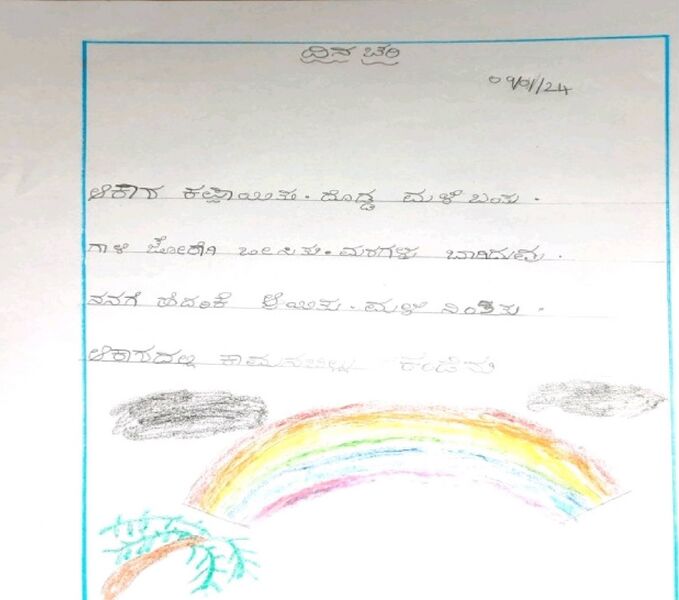 ದಿನಚರಿ
09/01/24
ಆಕಾಶ ಕಪ್ಪಾಯಿತು. ದೊಡ್ಡ ಮಳೆ ಬಂತು.
ಗಾಳಿ ಜೋರಾಗಿ ಬೀಸಿತು. ಮರಗಳು ಬಾಗಿದುವು.
ನನಗೆ ಹೆದರಿಕೆ ಆಯಿತು. ಮಳೆ ನಿಂತಿತು.
ಆಕಾಶದಲ್ಲಿ ಕಾಮನಬಿಲ್ಲು ಕಂಡೆನು